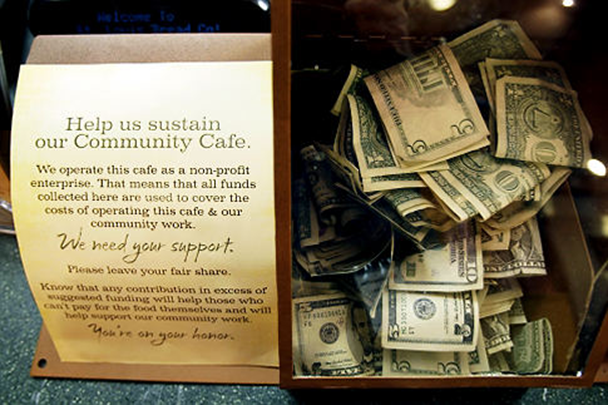 Welcome To
St. Louis Bread Co!
Help us sustain
our Community Cafe.
We operate this cafe as a non-profit
enterprise. That means that all funds
collected here are used to cover the
costs of operating this cafe & our
community work.
We need your support.
Please leave your fair share.
Know that any contribution in excess of
suggested funding will help those who
can't pay for the food themselves and will
help support our community work.
You're on your honor.
5
5
1
10
10
5
ONE DOLLAR